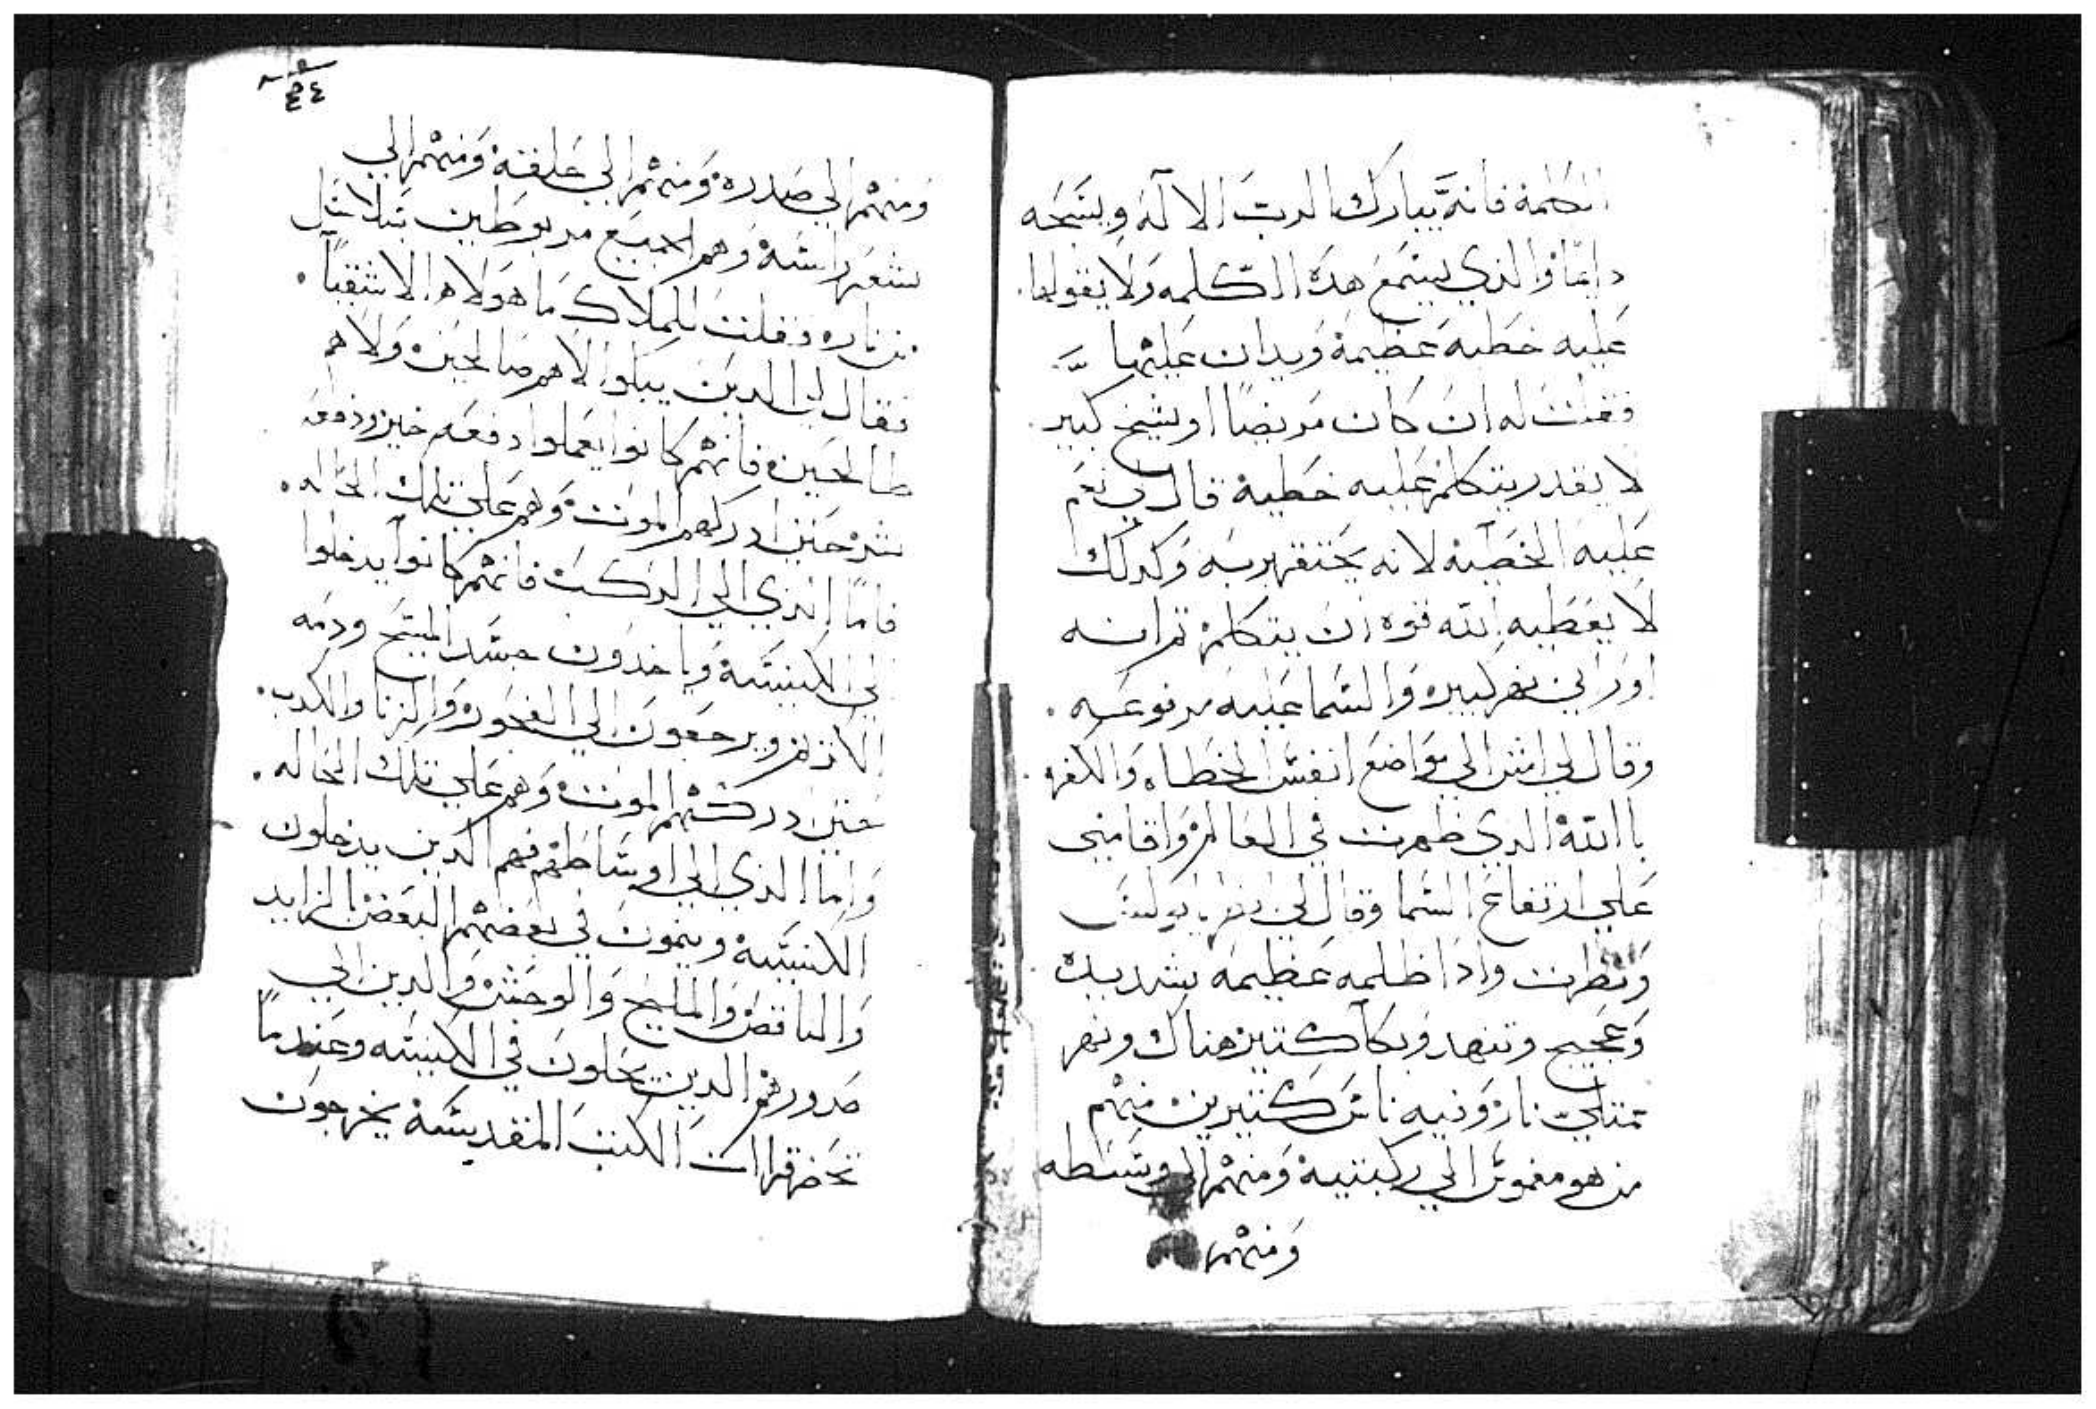 الكلمة فانه يبارك الرب الاله ويسبحه
دايمًا والذي يسمع هده الكلمه ولا يقولها.
عليه خطيه عظيمة ويدان عليها
فقلت له ان كان مريضًا او شيخ كبير
لا يقدر يتكلم عليه خطية قال لي نعم
عليه الخطيه لانه يحتقر بربه وكدلك
لا يعطيه الله قوه ان يتكلم ثم انه
اوراني نهر كبيره والسما عليه مرفوعه.
وقال لي امش الي مواضع انفس الخطاه والكفره
باالله الدي ظهرت في العالم واقامني
علي ارتفاع السما وقال لي انظر يا بولس
ونظرت وادا ظلمه عظيمه شديده
وعجيج وتنهد وبكآ كتير هناك ونهر
ممتلي نار وفيه ناس كتيرين منهم
من هو مغموس الي ركبتيه ومنهم الي وسطه
ومنهم
ومنهم الي صدره ومنهم الي حلقه ومنهم الي
شعر راسه وهم الجميع مربوطين بسلاسل
من ناره فقلت للملاك ما هولاه الاشقيآ.
فقال لي الدين يبكوا لاهم صالحين ولاهم
طالحين فانهم كانوا يعملوا دفعه خير ودفعه
شر حتي ادركهم الموت وهم علي تلك الحاله.
فامًا الذي الي الركب فانهم كانوآ يدخلوا
الي الكنيسه وياخدون جسد المسيح ودمه
الاقدس ويرجعون الي الفجوره والزنا والكدب.
حتي دركتهم الموت وهم علي تلك الحاله.
واما الذي الي اوساطهم فهم الدين يدخلون
الكنيسه وينمون في بعضهم البعض الزايد
والناقص والمليح والوحش والدين الي
صدورهم الدين يتكلون في الكنيسه وعندمًا
تحضر قراات الكتب المقدسه يخرجون